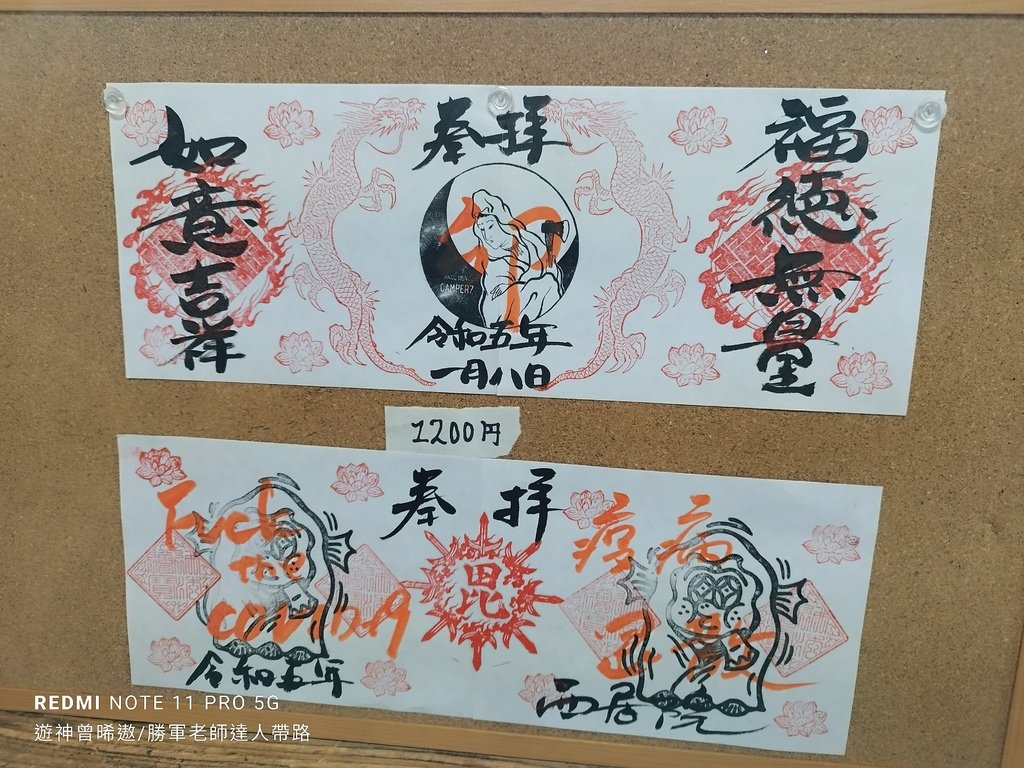 如意吉祥
奉拝
CAMPER7
令和五年
一月八日
福徳無量
1200円
Fuck
the
COVID19
令和五年
奉拝
毘
疫病
西居院
REDMI NOTE 11 PRO 5G
遊神曾晞遨/勝軍老師達人帶路